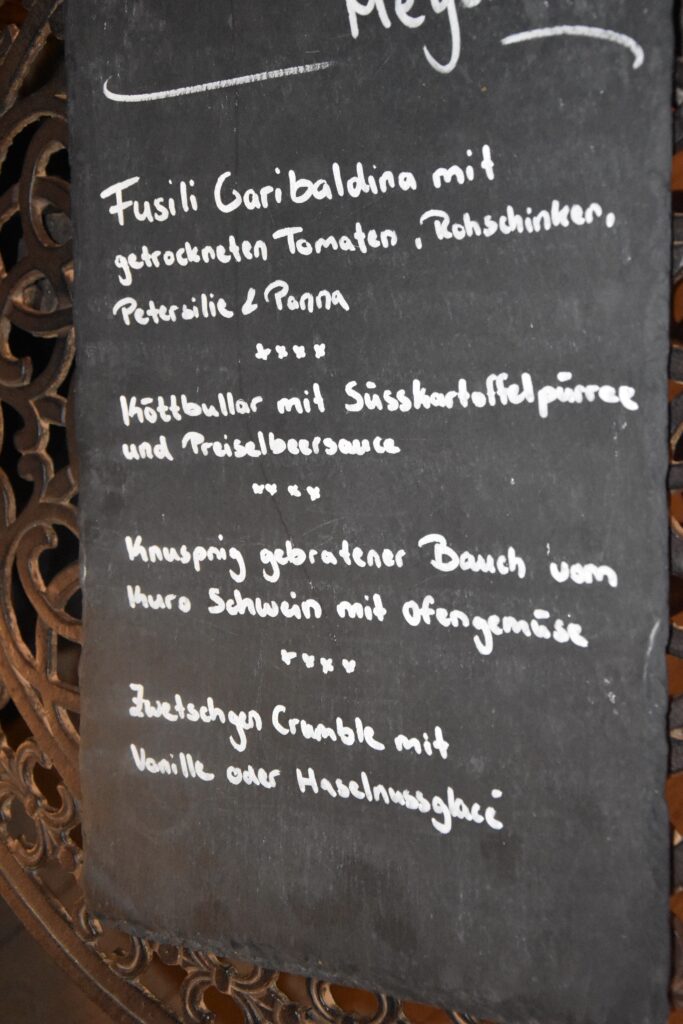 Fusili Garibaldina mit
getrockneten Tomaten, Rohschinken,
Petersilie & Panna
****
Köttbullar mit Süsskartoffelpürree
und Preiselbeersauce
****
Knusprig gebratener Bauch vom
Kuro Schwein mit Ofengemüse
****
Zwetschgen Crumble mit
Vanille oder Haselnussglacé